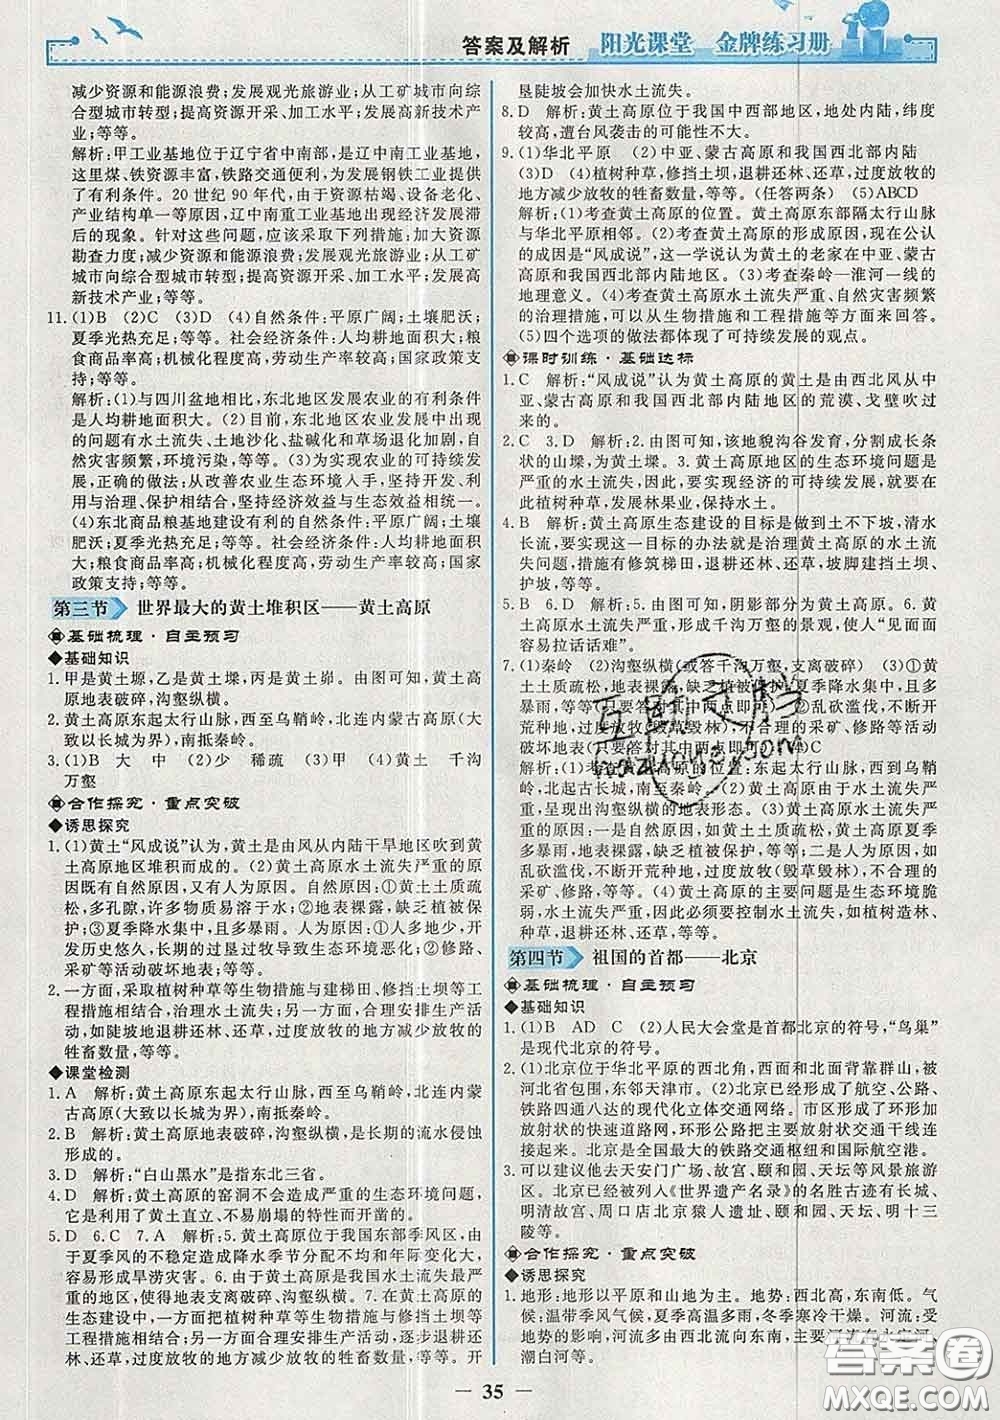 答案及解析 阳光课堂 金牌练习册
减少资源和能源浪费;发展观光旅游业;从工矿城市向综
合型城市转型;提高资源开采、加工水平;发展高新技术产
业;等等。
解析:甲工业基地位于辽宁省中南部,是辽中南工业基地,
这里煤、铁资源丰富,铁路交通便利,为发展钢铁工业提供
了有利条件。20 世纪 90 年代,由于资源枯竭、设备老化、
产业结构单一等原因,辽中南重工业基地出现经济发展滞
后的现象。针对这些问题,应该采取下列措施:加大资源
勘查力度;减少资源和能源浪费;发展观光旅游业;从工矿
城市向综合型城市转型;提高资源开采、加工水平;发展高
新技术产业;等等。
11. (1)B (2)C (3)D (4)自然条件:平原广阔;土壤肥沃、
夏季光热充足;等等。社会经济条件:人均耕地面积大;粮
食商品率高;机械化程度高,劳动生产率较高;国家政策支
持;等等。
解析:(1)与四川盆地相比,东北地区农业发展的有利条件
是人均耕地面积大。(2)目前,东北地区农业发展中出现
的问题有水土流失、土地沙化、盐碱化和草场退化加剧,自
然灾害频繁,环境污染等。(3)为实现农业的可持续发展,
正确的做法:从改善农业生态环境入手,坚持开发、利
用与治理、保护相结合,坚持经济效益与生态效益相结合。
(4)东北商品粮基地建设有利的自然条件:平原广阔;土壤
肥沃;夏季光热充足;等等。社会经济条件:人均耕地面积
大;粮食商品率高;机械化程度高,劳动生产率较高;国家
政策支持;等等。
第三节 世界最大的黄土堆积区——黄土高原
基础梳理·自主预习
◆基础知识
1. 甲是黄土塬,乙是黄土墚,丙是黄土峁。由图可知,黄土高
原地表破碎,沟壑纵横。
2. 黄土高原东起太行山脉,西至乌鞘岭,北连内蒙古高原(大
致以长城为界),南抵秦岭。
3. (1)B 大 中 (2)少 稀疏 (3)甲 (4)黄土 千沟
万壑
合作探究·重点突破
◆诱思探究
1. (1)黄土“风成说”认为,黄土是由风从内陆干旱地区吹到黄
土高原地区堆积而成的。(2)黄土高原水土流失严重的原
因既有自然原因,又有人为原因。自然原因:①黄土土质疏
松,多孔隙,许多物质易溶于水;②地表裸露,缺乏植被保
护;③夏季降水集中,且多暴雨。人为原因:①黄土高原开
发历史悠久,长期的过度开垦导致生态环境恶化;②修路、
采矿等活动破坏地表;等等。
2. 一方面,采取植树种草等生物措施与建梯田、修挡土坝等工
程措施相结合,治理水土流失;另一方面,合理安排生产活
动,如陡坡地退耕还林、还草,过度放牧的地方减少放牧的
牲畜数量,等等。
◆课堂检测
1. A 解析:黄土高原东起太行山脉,西至乌鞘岭,北连内蒙
古高原(大致以长城为界),南抵秦岭。
2. B 解析:黄土高原地表破碎,沟壑纵横,是长期的流水侵蚀
形成的。
3. D 解析:“白山黑水”是指东北三省。
4. D 解析:黄土高原的窑洞不会造成严重的生态环境问题,它
利用了黄土直立、不易崩塌的特性而开凿的。
5. D 6. C 7. A 解析:5. 黄土高原位于我国东部季风区,由
于夏季风的不稳定造成降水季节分配不均和年际变化大,
容易形成旱涝灾害。6. 由于黄土高原是我国水土流失最严
重的地区,使得地表支离破碎、沟壑纵横。7. 在黄土高原的
生态建设中,一方面把植树种草等生物措施与修挡土坝等
工程措施相结合;另一方面合理安排生产活动,退耕还林、
还草,过度放牧的地方减少放牧的牲畜数量,等等。开
垦陡坡会加快水土流失。
8. D 解析:黄土高原位于我国中西部地区,地处内陆,纬度
较高,遭台风袭击的可能性不大。
9. (1)华北平原 (2)中亚、蒙古高原和我国西北部内陆
(3)D (4)植树种草,修挡土坝,退耕还林、还草,过度放牧的
地方减少放牧的牲畜数量,等等。(任答两条) (5)ABCD
解析:(1)考查黄土高原的位置。黄土高原东部隔太行山脉
与华北平原相邻。(2)考查黄土高原的形成原因,现在公认
的成因是“风成说”,这一学说认为黄土来自于中亚、蒙古
高原和我国西北部内陆地区。(3)考查秦岭—淮河一线的
地理意义。(4)考查黄土高原水土流失严重、自然灾害频繁
的治理措施,可以从生物措施和工程措施等方面来回答。
(5)四个选项的做法都体现了可持续发展的观点。
课时训练·基础达标
1. C 解析:“风成说”认为黄土高原的黄土是由西北风从中
亚、蒙古高原和我国西北部内陆地区的荒漠、戈壁吹过
来的。
2. C 3. D 解析:2. 由图可知,该地貌沟谷发育,分割成长条
状的山墚,为黄土墚。3. 黄土高原地区的生态环境问题是
水土流失严重,所以,要实现经济的可持续发展,就要在
此植树种草,发展林果业,保持水土。
4. B 解析:黄土高原生态建设的目标是做到土不下坡,清水
长流,要实现这一目标的办法就是治理黄土高原的水土流
失问题,措施有修筑梯田、打坝建库、退耕还林还草、
护坡等。
5. B 6. D 解析:5. 由图可知,阴影部分为黄土高原。6. 黄土
高原水土流失严重,形成千沟万壑的景观,使人“见面面
容易拉话话难”。
7. (1)秦岭 (2)沟壑纵横(或答千沟万壑,支离破碎) (3)①黄
土土质疏松,地表裸露,缺乏植被保护;夏季降水集中,且多
暴雨。(只要答对其中两点即可) ②乱砍滥伐,不断开
荒种地,过度放牧(毁草毁林),不合理的采矿、修路等活动
破坏地表(只要答对其中两点即可) (4)C
解析:(1)黄土高原的位置:东起太行山脉,西至乌鞘
岭,北起长城,南到秦岭。(2)黄土高原水土流失严
重,呈现出沟壑纵横的地表形态。(3)黄土高原水土流失严
重的原因:一是自然原因,如黄土土质疏松,黄土高原夏季
多暴雨,地表裸露,缺乏植被保护,等等;二是人为原因,如
乱砍滥伐,不断开荒种地,过度放牧(毁草毁林),不合理的
采矿、修路,等等。(4)黄土高原的主要问题是生态环境脆
弱,水土流失严重,因此必须要控制水土流失,如植树造林、
种草,退耕还林、还草,等等。
第四节 祖国的首都——北京
基础梳理·自主预习
◆基础知识
1. (1)B AD C (2)人民大会堂是首都北京的符号,“鸟巢”
是现代北京的符号。
2. (1)北京位于华北平原的西北角,西面和北面背靠群山,被
河北省包围,东邻天津市。(2)北京已经形成了航空、公路、
铁路四通八达的现代化立体交通网络。市区形成了环形加
放射状的快速道路网,环形公路把主要放射状交通干线连
接起来。北京是全国最大的铁路交通枢纽和国际航空港。
3. 可以建议他去天安门广场、故宫、颐和园等地风景旅游
区。北京已经被列入《世界遗产名录》的名胜古迹有长城、
明清故宫、周口店北京猿人遗址、颐和园、天坛、明十三
陵等。
合作探究·重点突破
◆诱思探究
1. 地形:地形以平原和山地为主。地势:西北高,东南低。气
候:温带季风气候,夏季高温多雨,冬季寒冷干燥。河流:受
地势的影响,河流主要由西北流向东南,主要河流有永定河、
潮白河等。
— 35 —
答案圈
MXQE.COM